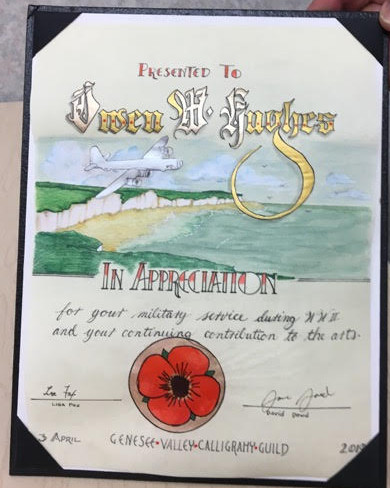 Presented To
Owen W. Hughes
In Appreciation
for your military service during WW II
and your continuing contribution to the arts.
Lisa Fox
3 April
Genesee • Valley • Calligraphy • Guild